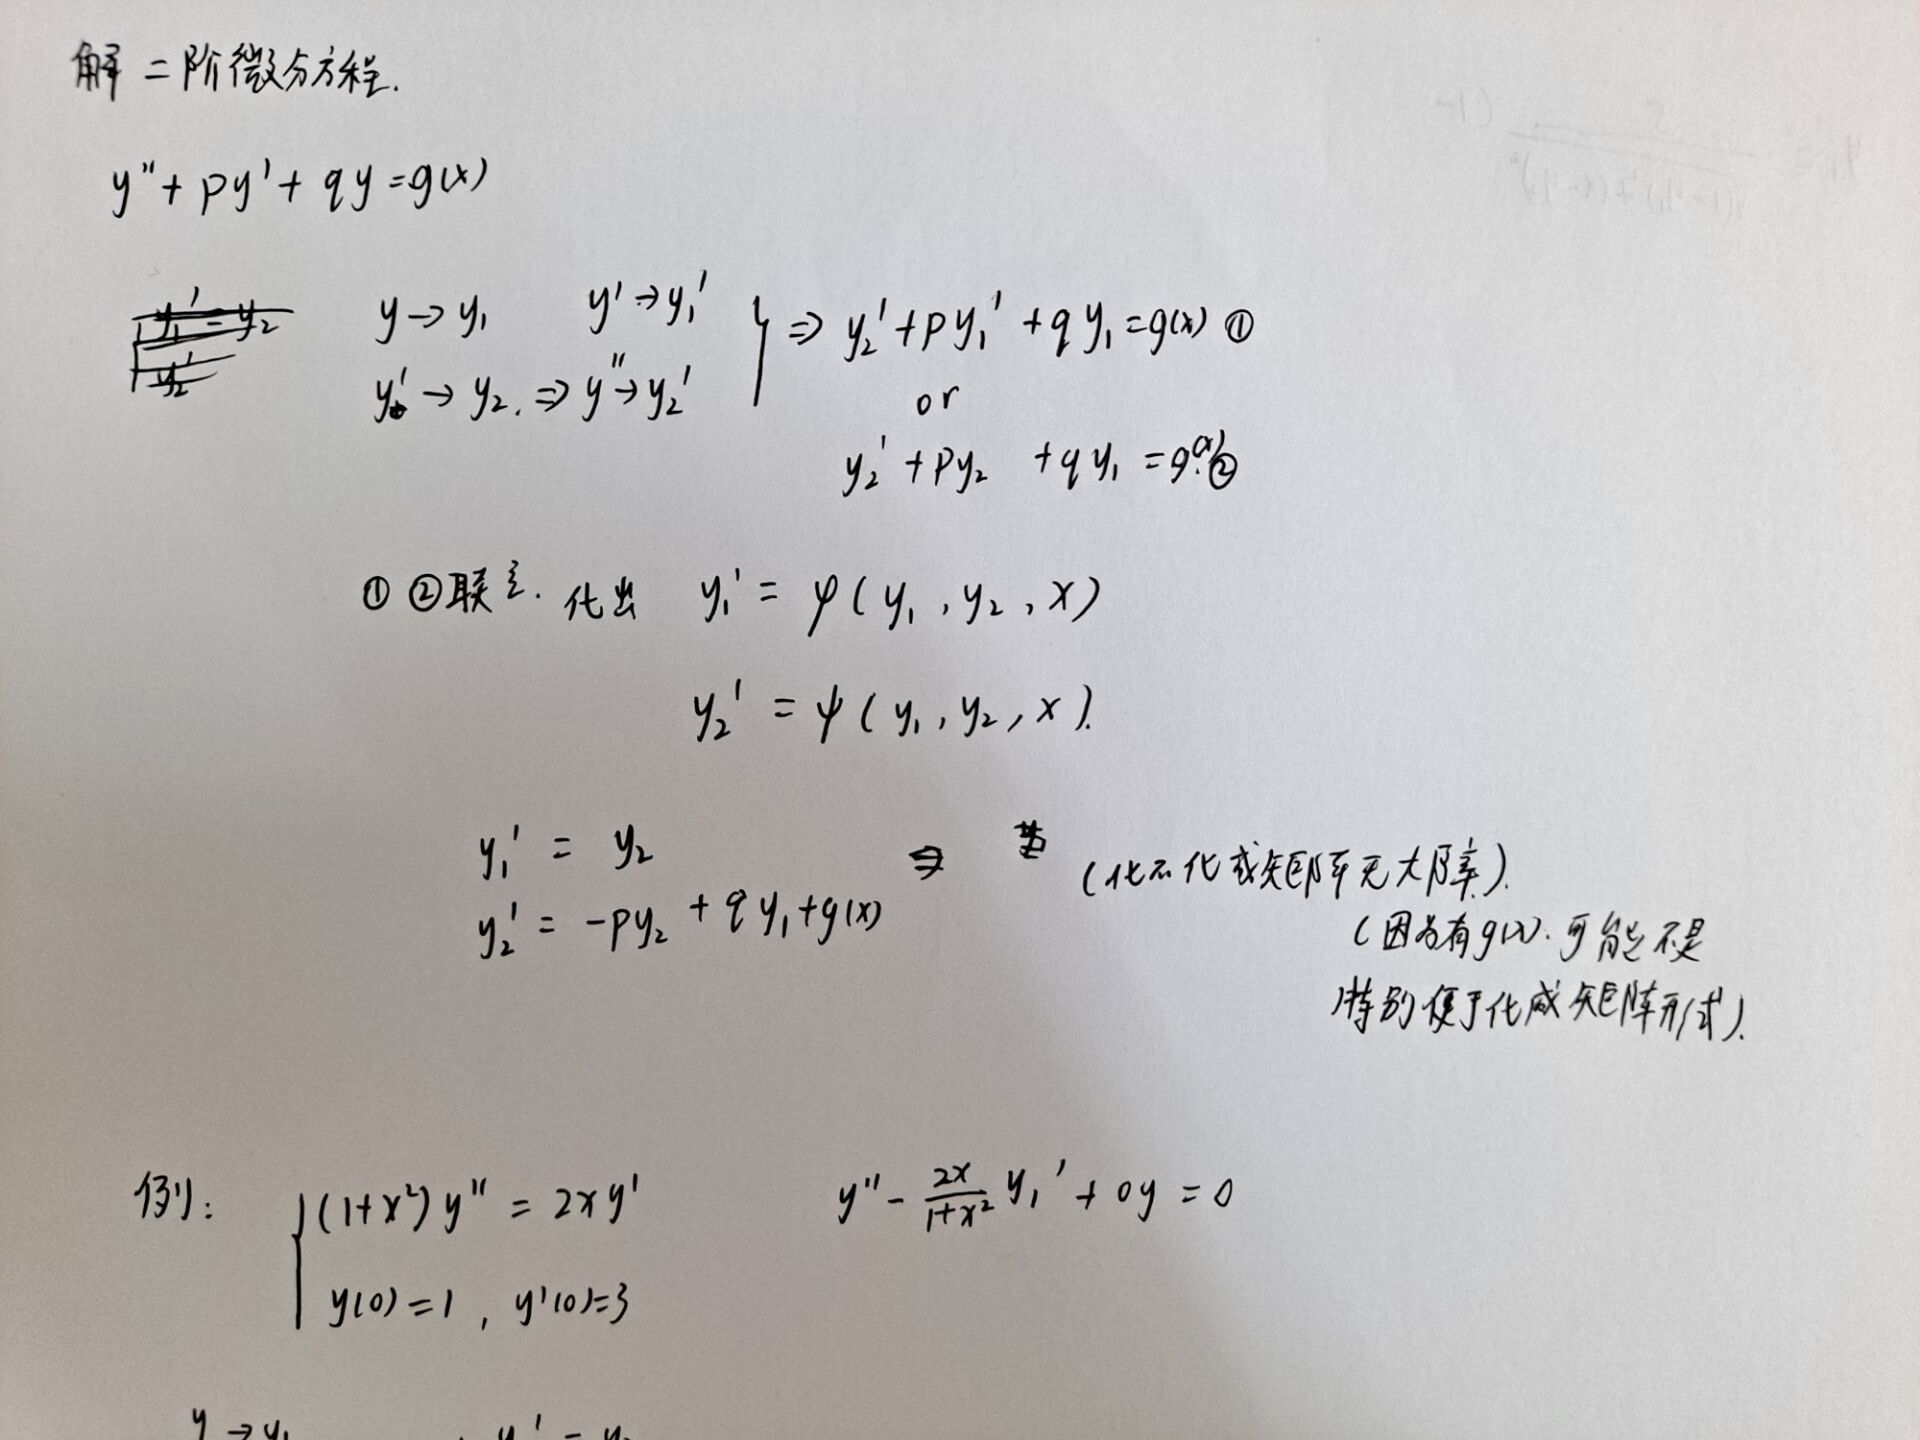 解二阶微分方程.
y''+py'+qy=g(x)
y→y₁ y'→y₁' } ⇒ y₂'+py₁'+qy₁=g(x) ①
y'→y₂. ⇒ y''→y₂' or
y₂'+py₂+qy₁=g(x) ②
①②联立. 化出 y₁' = φ(y₁, y₂, x)
y₂' = ψ(y₁, y₂, x).
y₁' = y₂ ⇒
y₂' = -py₂+qy₁+g(x)
(化不化成矩阵无大碍).
(因为有g(x). 可能不是
特别便于化成矩阵形式).
例: { (1+x²)y'' = 2xy' y'' - 2x/(1+x²) y₁' + 0y = 0
y(0)=1, y'(0)=3
y→y₁ y' = y₂